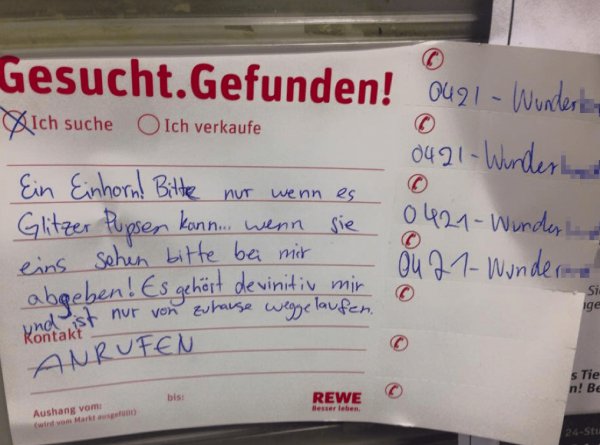 Gesucht.Gefunden!
Ich suche Ich verkaufe
Ein Einhorn! Bitte nur wenn es
Glitzer Pupsen kann... wenn sie
eins sehen bitte bei mir
abgeben! Es gehört devinitiv mir
und ist nur von zuhause weggelaufen.
Kontakt
ANRUFEN
Aushang vom: bis:
(wird vom Markt ausgefüllt)
REWE
Besser leben.
0421 - Wunder
0421 - Wunder
0421 - Wunder
0421 - Wunder
s Tie
n! Be
24-Stu